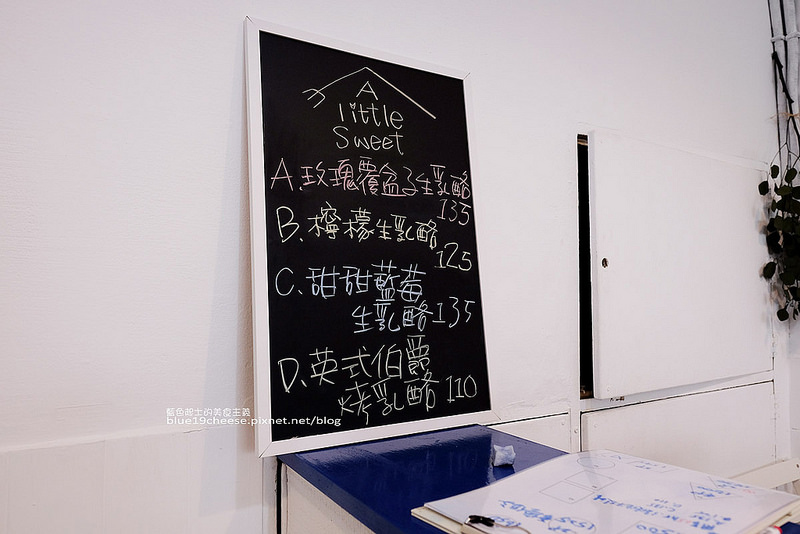 A
little
Sweet
A.玫瑰覆盆子生乳酪
135
B、檸檬生乳酪
125
C、甜甜藍莓
生乳酪135
D、英式伯爵
烤乳酪110
藍色起士的美食主義
blue19cheese.pixnet.net/blog